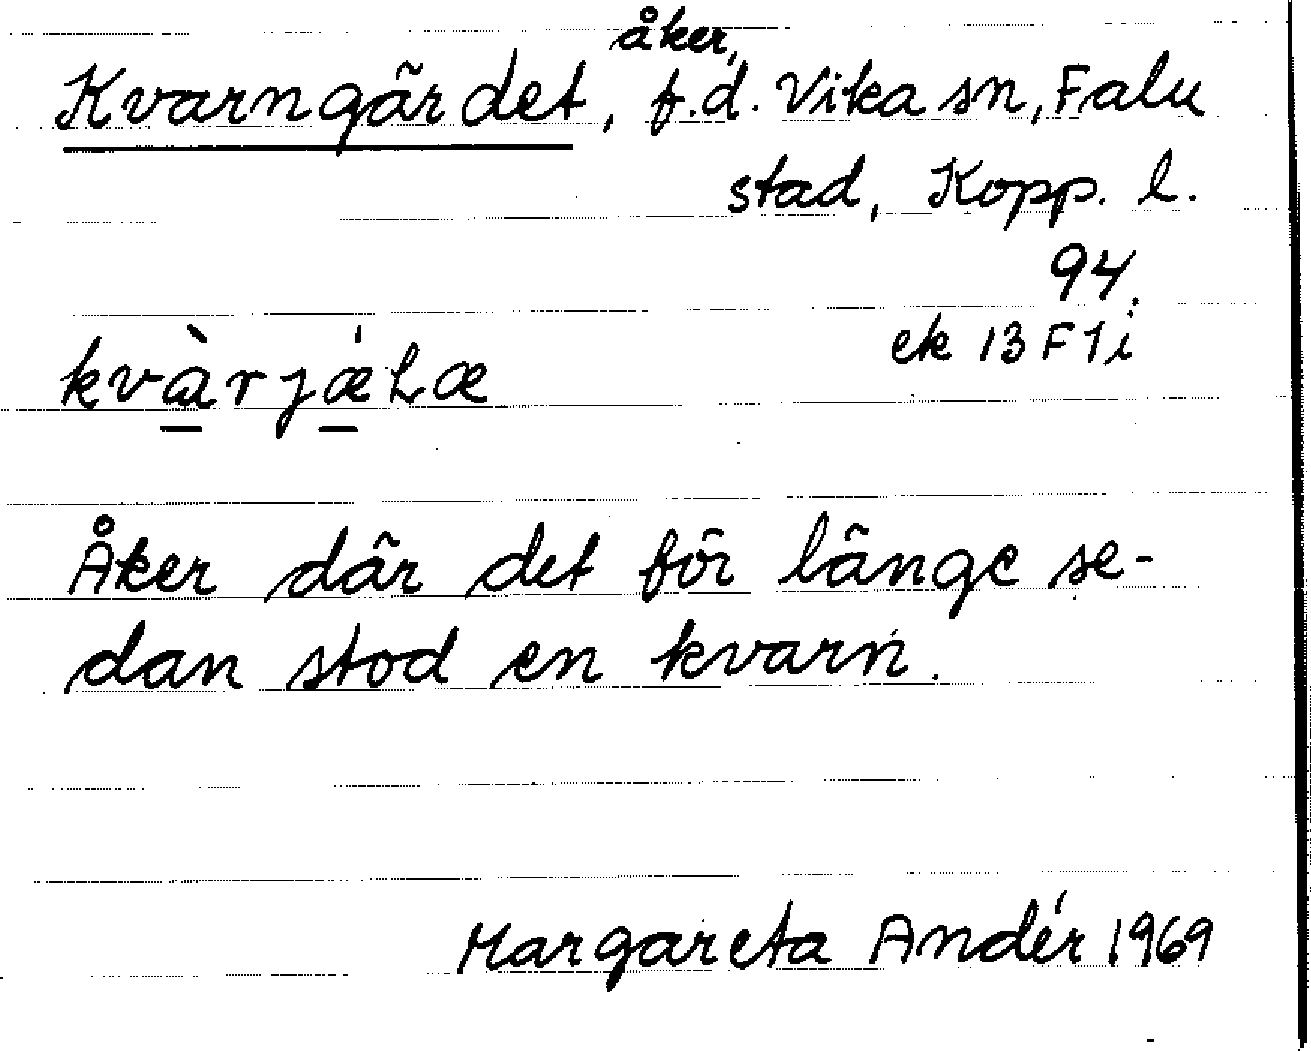 Kvarngärdet, åker, f.d. Vika sn, Falu
stad, Kopp. l.
94.
ek 13 F 1 i
kvàrjǽLæ
Åker där det för länge se-
dan stod en kvarn.
Margareta Andér 1969